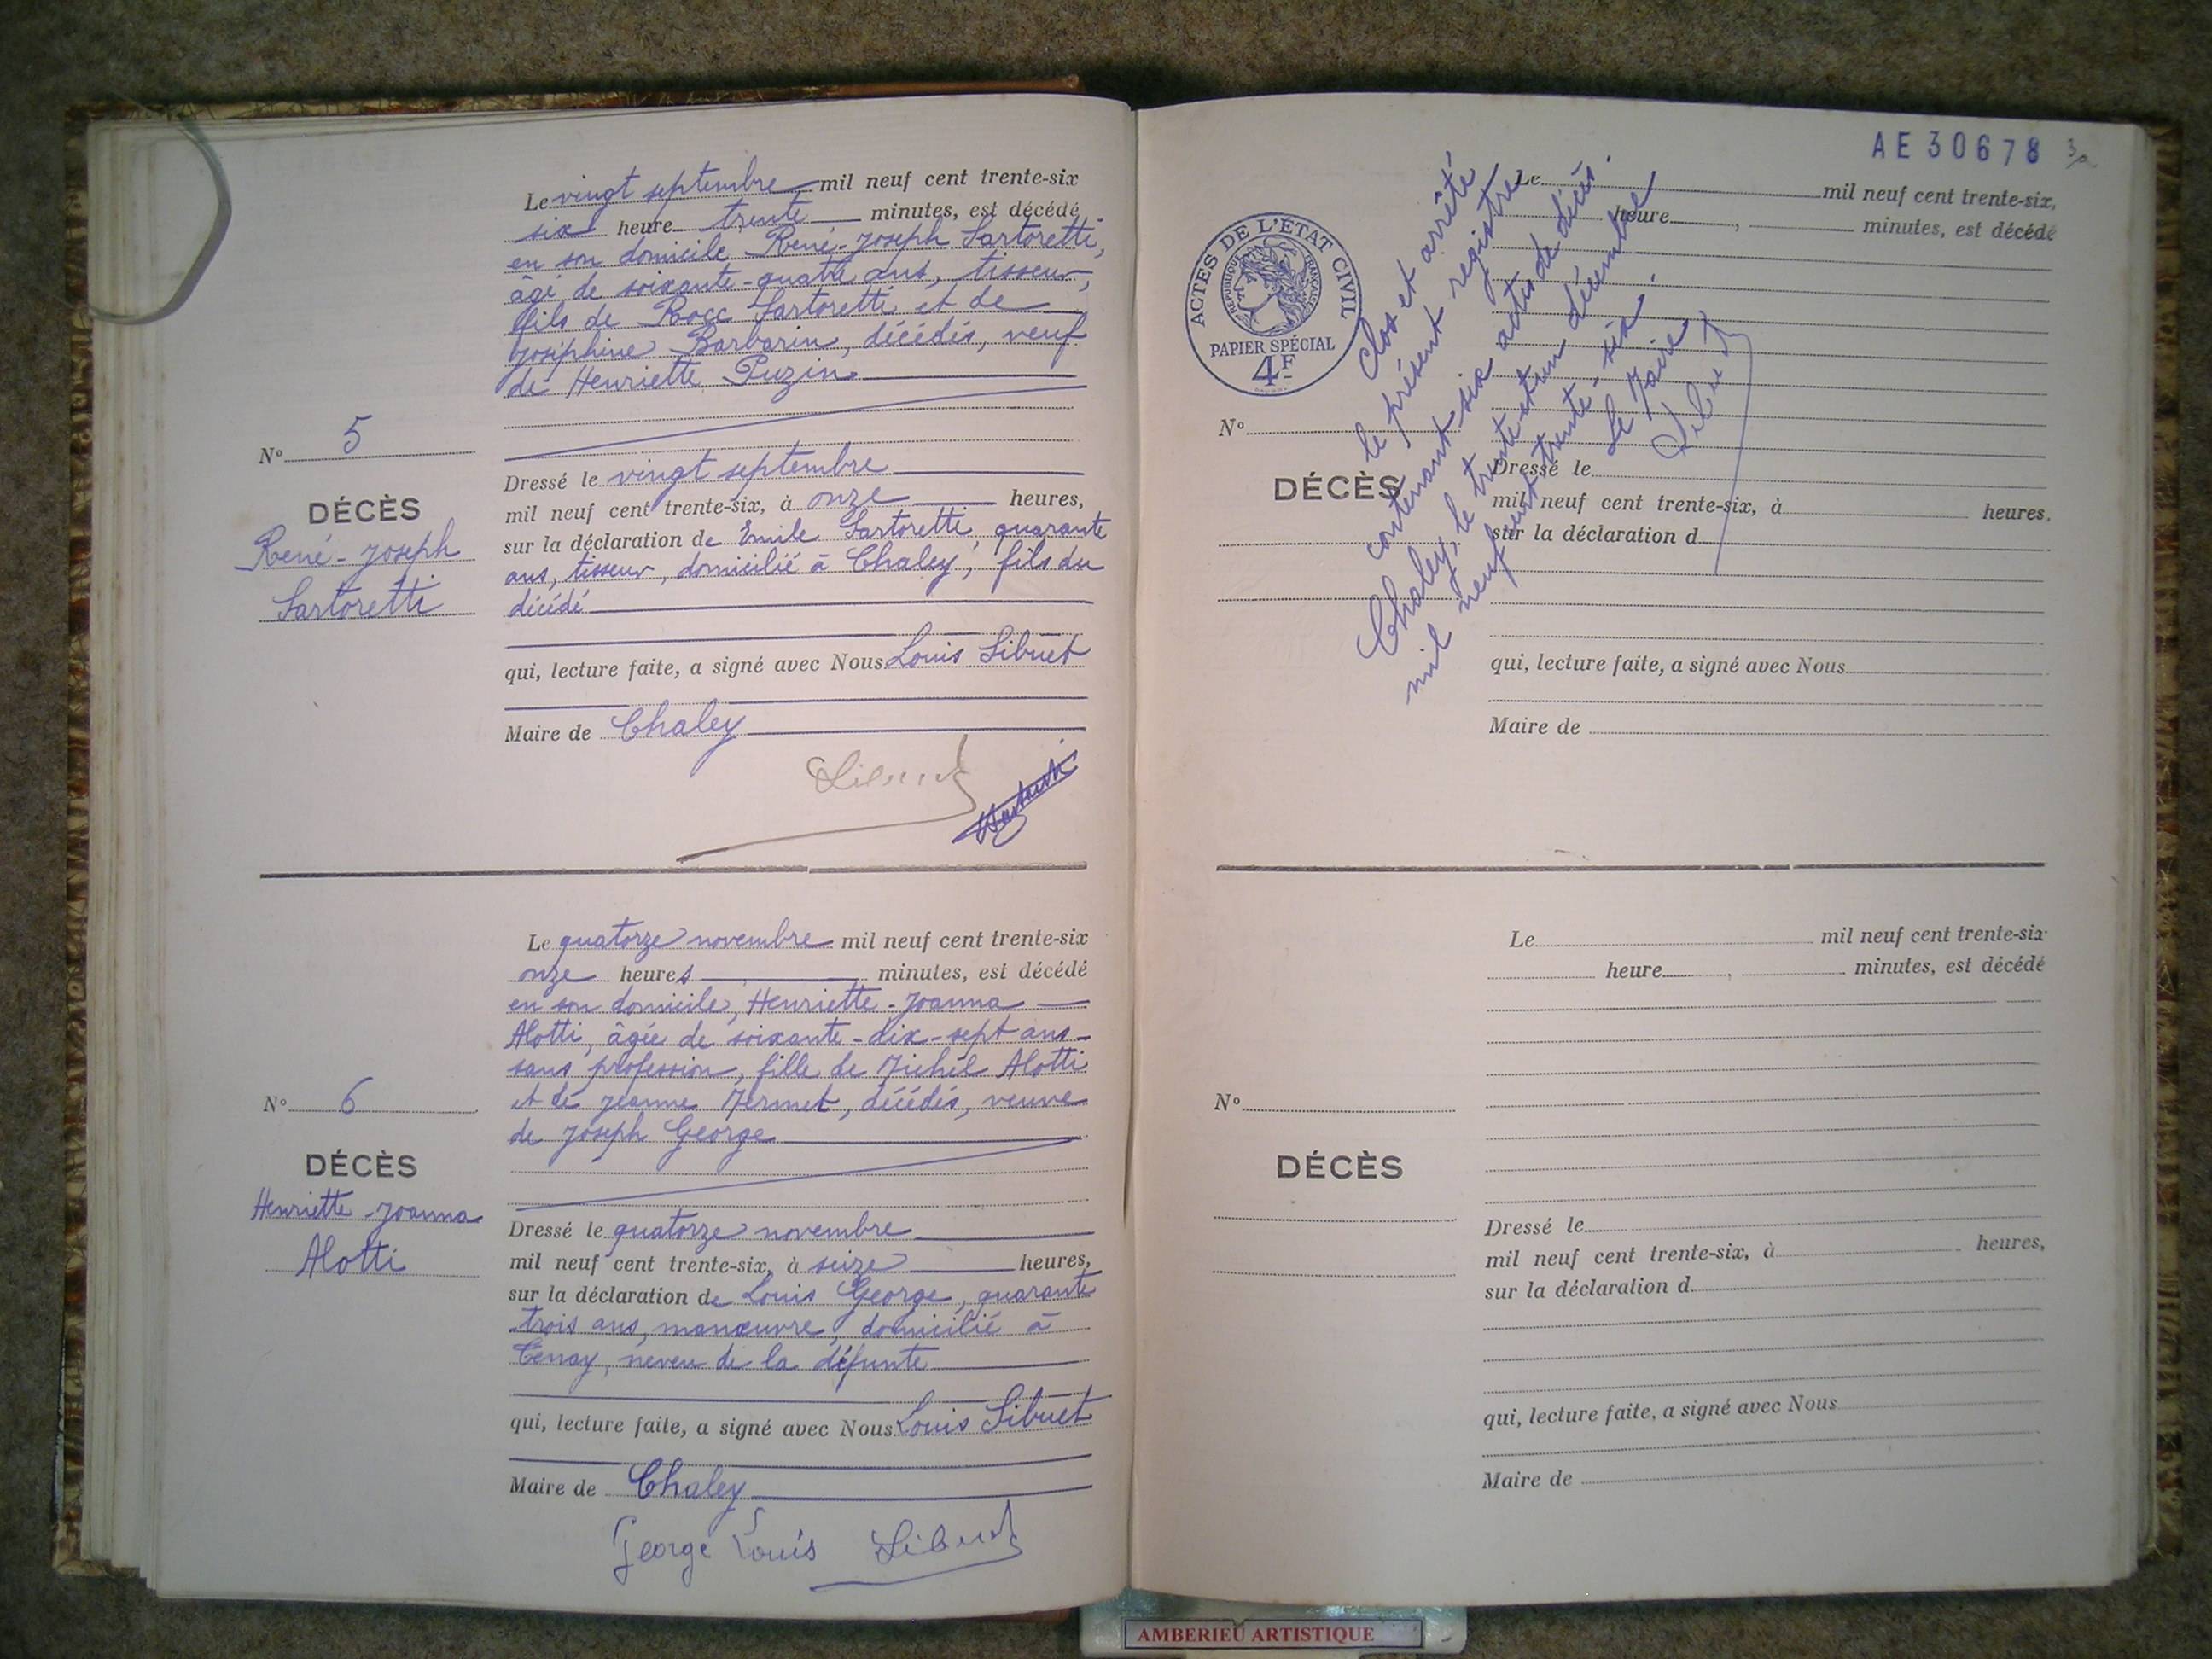 Le vingt septembre mil neuf cent trente-six
six heure trente minutes, est décédé
en son domicile René-Joseph Sartoretti,
âgé de soixante-quatre ans, tisseur,
fils de Rocc Sartoretti et de
Joséphine Barbarin, décédés, veuf
de Henriette Puzin
N° 5
DÉCÈS
René-Joseph
Sartoretti
Dressé le vingt septembre
mil neuf cent trente-six, à onze heures,
sur la déclaration de Emile Sartoretti, quarante
ans, tisseur, domicilié à Chaley, fils du
décédé
qui, lecture faite, a signé avec Nous Louis Sibuet
Maire de Chaley
Sibuet
Le quatorze novembre mil neuf cent trente-six
onze heures minutes, est décédé
en son domicile, Henriette-Joanna
Alotti, âgée de soixante-dix-sept ans
sans profession, fille de Michel Alotti
et de Jeanne Mermet, décédés, veuve
de Joseph George
N° 6
DÉCÈS
Henriette-Joanna
Alotti
Dressé le quatorze novembre
mil neuf cent trente-six, à seize heures,
sur la déclaration de Louis George, quarante
trois ans, manœuvre, domicilié à
Tenay, neveu de la défunte
qui, lecture faite, a signé avec Nous Louis Sibuet
Maire de Chaley
George Louis Sibuet
AE 30678
ACTES DE L'ÉTAT CIVIL
RÉPUBLIQUE FRANÇAISE
PAPIER SPÉCIAL
4F
Clos et arrêté
le présent registre
contenant six actes de décès.
Chaley, le trente et un décembre
mil neuf cent trente-six.
Le Maire
Sibuet
Le mil neuf cent trente-six,
heure , minutes, est décédé
N°
DÉCÈS
Dressé le
mil neuf cent trente-six, à heures.
sur la déclaration d
qui, lecture faite, a signé avec Nous
Maire de
Le mil neuf cent trente-six
heure , minutes, est décédé
N°
DÉCÈS
Dressé le
mil neuf cent trente-six, à heures,
sur la déclaration d
qui, lecture faite, a signé avec Nous
Maire de
AMBERIEU ARTISTIQUE